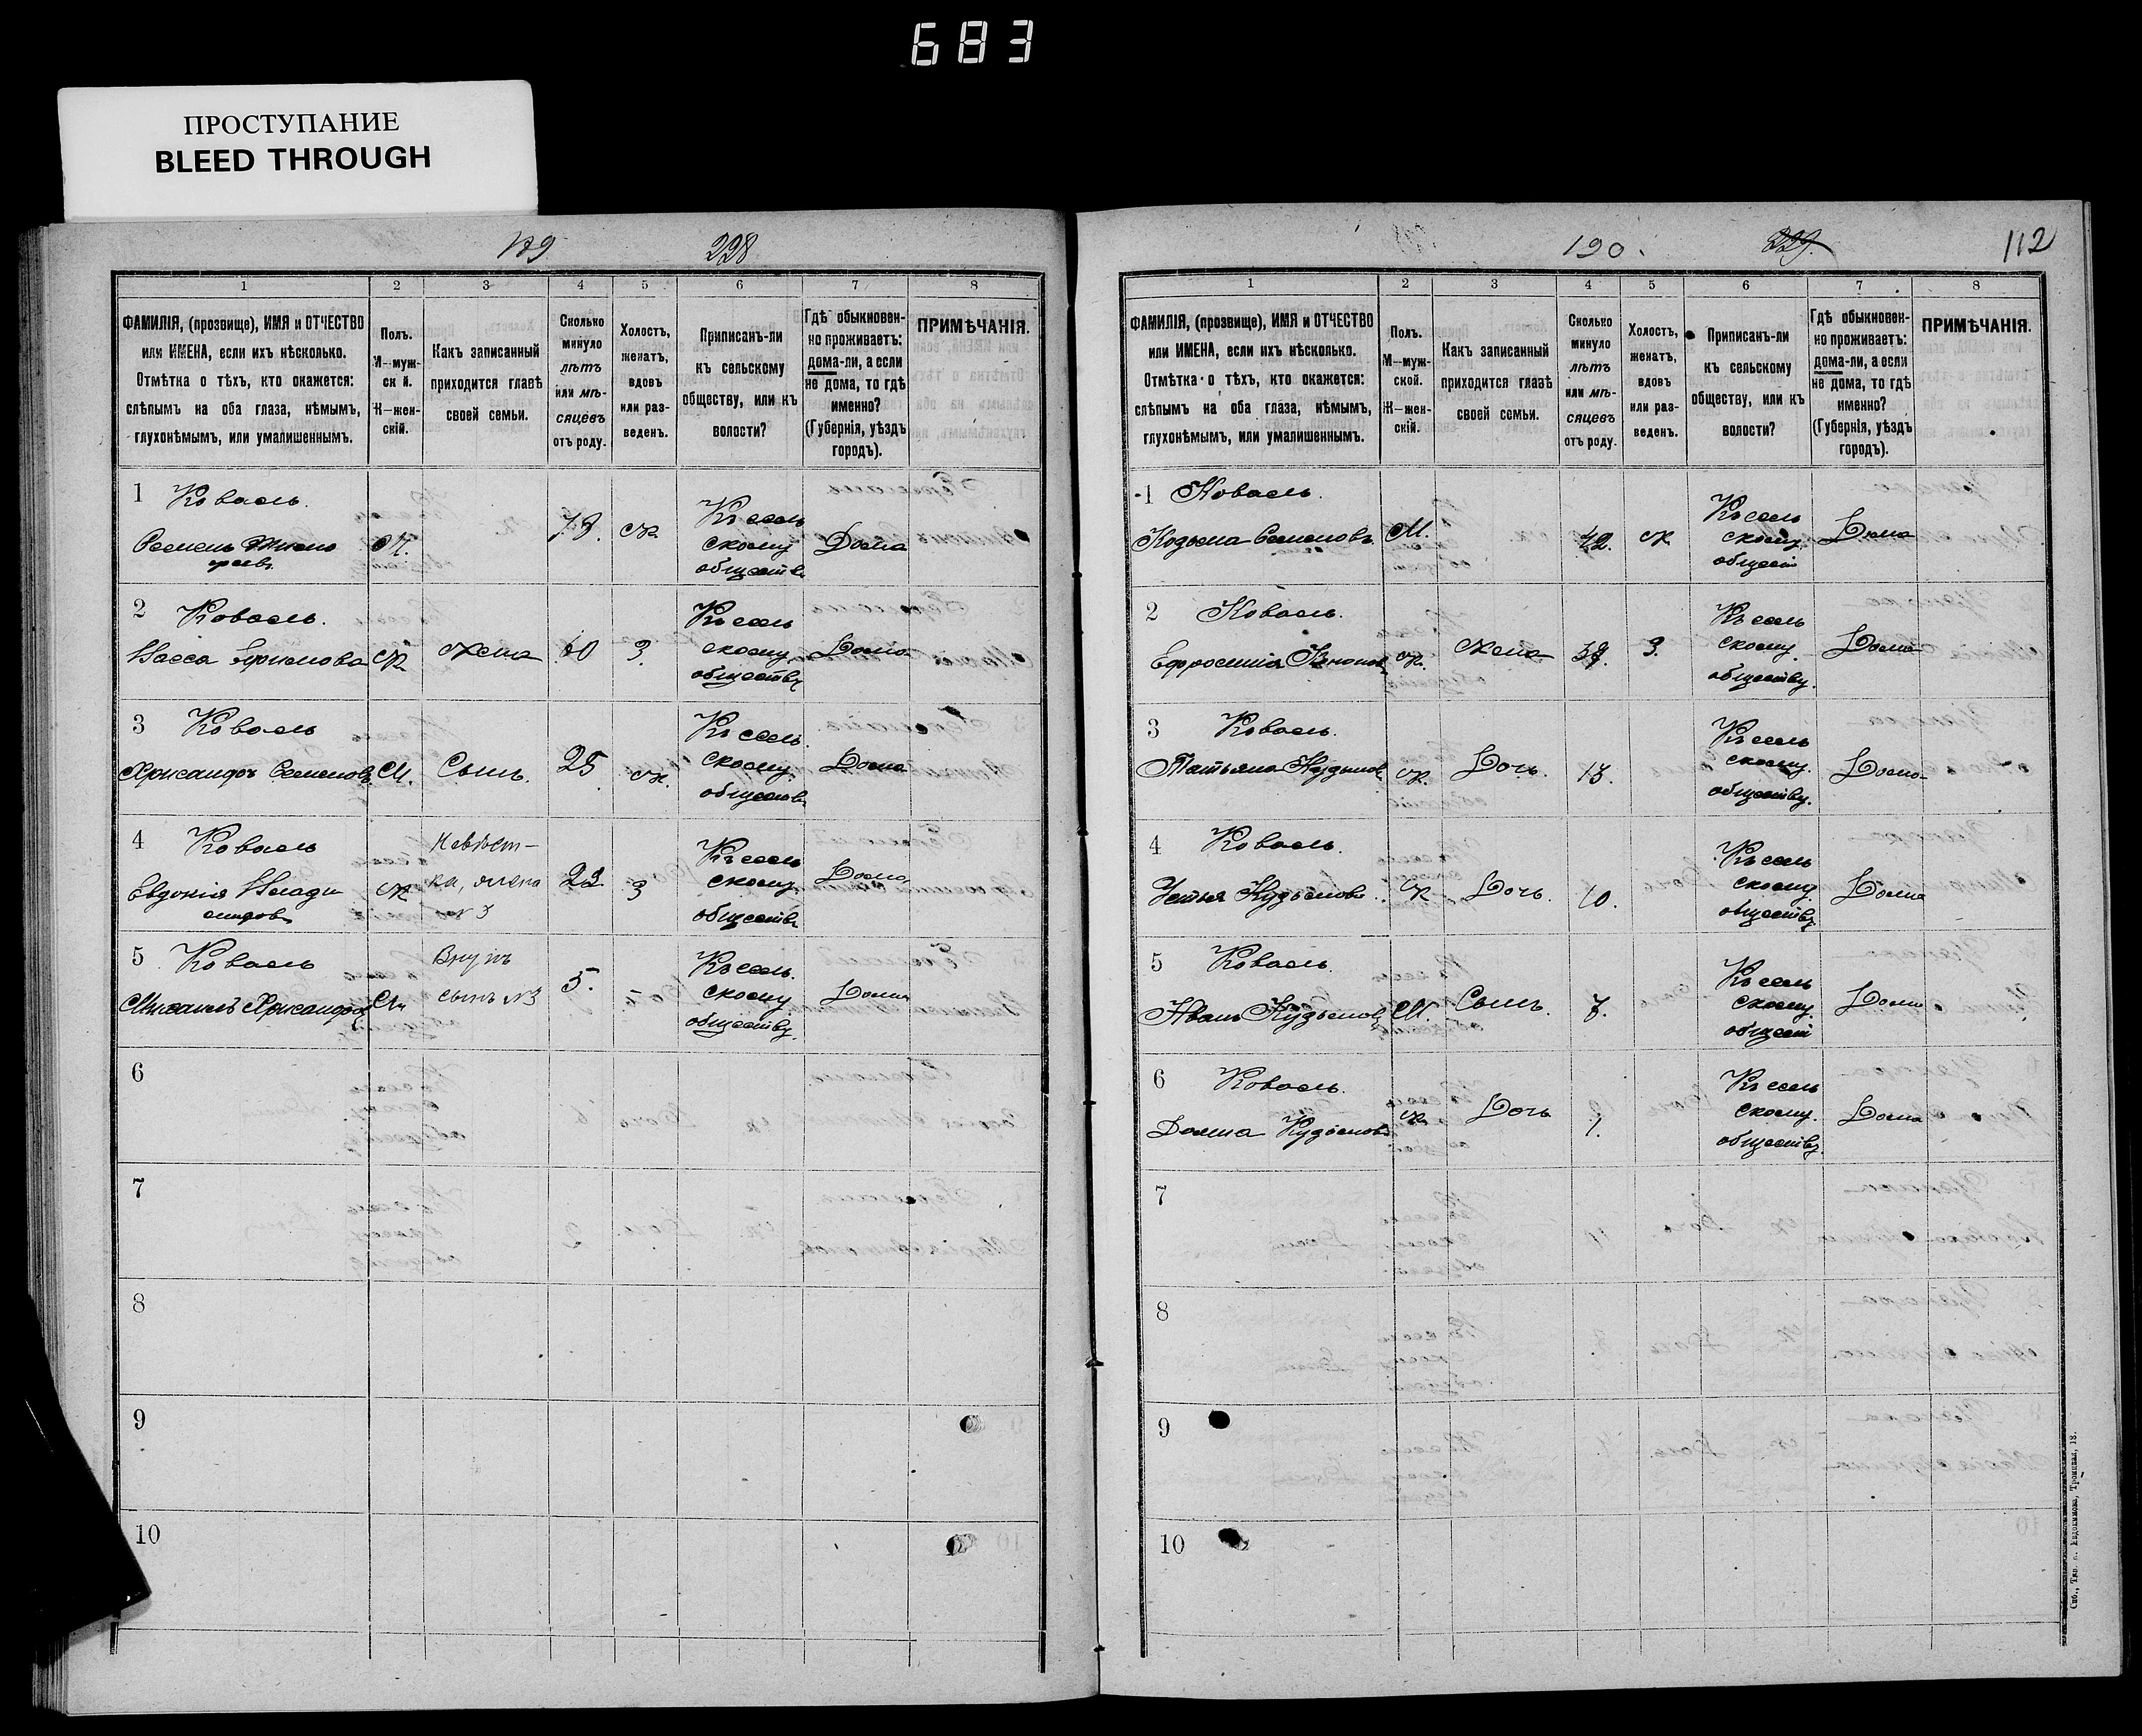 683
ПРОСТУПАНИЕ
BLEED THROUGH
228
1 2 3 4 5 6 7 8
ФАМИЛІЯ, (прозвище), ИМЯ и ОТЧЕСТВО
или ИМЕНА, если ихъ нѣсколько.
Отмѣтка о тѣхъ, кто окажется:
слѣпымъ на оба глаза, нѣмымъ,
глухонѣмымъ, или умалишеннымъ.
Полъ.
М—муж-
ск й.
Ж—жен-
скій.
Какъ записанный
приходится главѣ
своей семьи.
Сколько
минуло
лѣтъ
или мѣ-
сяцевъ
отъ роду.
Холостъ,
женатъ,
вдовъ
или раз-
веденъ.
Приписанъ-ли
къ сельскому
обществу, или къ
волости?
Гдѣ обыкновен-
но проживаетъ:
дома-ли, а если
не дома, то гдѣ
именно?
(Губернія, уѣздъ
городъ).
ПРИМѢЧАНІЯ.
1 Коваль.
Семенъ
М. ж
Къ сель
скому
обществ
Дома
2 Коваль.
Васса
ж жена 60 З.
Къ сель
скому
обществу
Дома
3 Коваль
Хрисанфъ Семеновъ М. Сынъ. 25 ж.
Къ сель
скому
обществ
Дома
4 Коваль
Евдокія
ж
Невѣст-
ка, жена
№ 3
З
Къ сель
скому
обществ
Дома
5 Коваль
Михаилъ Хрисанфов М
Внукъ
сынъ №3
5.
Къ сель
скому
обществу.
Дома
6
7
8
9
10
190. 229. 112
1 2 3 4 5 6 7 8
ФАМИЛІЯ, (прозвище), ИМЯ и ОТЧЕСТВО
или ИМЕНА, если ихъ нѣсколько.
Отмѣтка о тѣхъ, кто окажется:
слѣпымъ на оба глаза, нѣмымъ,
глухонѣмымъ, или умалишеннымъ.
Полъ.
М—муж-
ской.
Ж—жен-
скій.
Какъ записанный
приходится главѣ
своей семьи.
Сколько
минуло
лѣтъ
или мѣ-
сяцевъ
отъ роду.
Холостъ,
женатъ,
вдовъ
или раз-
веденъ.
Приписанъ-ли
къ сельскому
обществу, или къ
волости?
Гдѣ обыкновен-
но проживаетъ:
дома-ли, а если
не дома, то гдѣ
именно?
(Губернія, уѣздъ
городъ).
ПРИМѢЧАНІЯ.
1 Коваль.
Козьма Семеновъ М. 42. ж
Къ сель
скому
общест
Дома
2 Коваль.
Ефросинія
ж. жена З.
Къ сель
скому.
обществу.
Дома
3 Коваль.
Татьяна Кузьмов ж. Дочь. 13.
Къ сель
скому.
обществу.
Дома
4 Коваль.
Устья Кузьмов ж Дочь. 10.
Къ сель
скому
обществу
Дома
5 Коваль.
Иванъ Кузьмов М. Сынъ. 7.
Къ сель
скому.
общест
Дома
6 Коваль.
Домна Кузьмов ж Дочь 1.
Къ сель
скому.
обществу
Дома
7
8
9
10